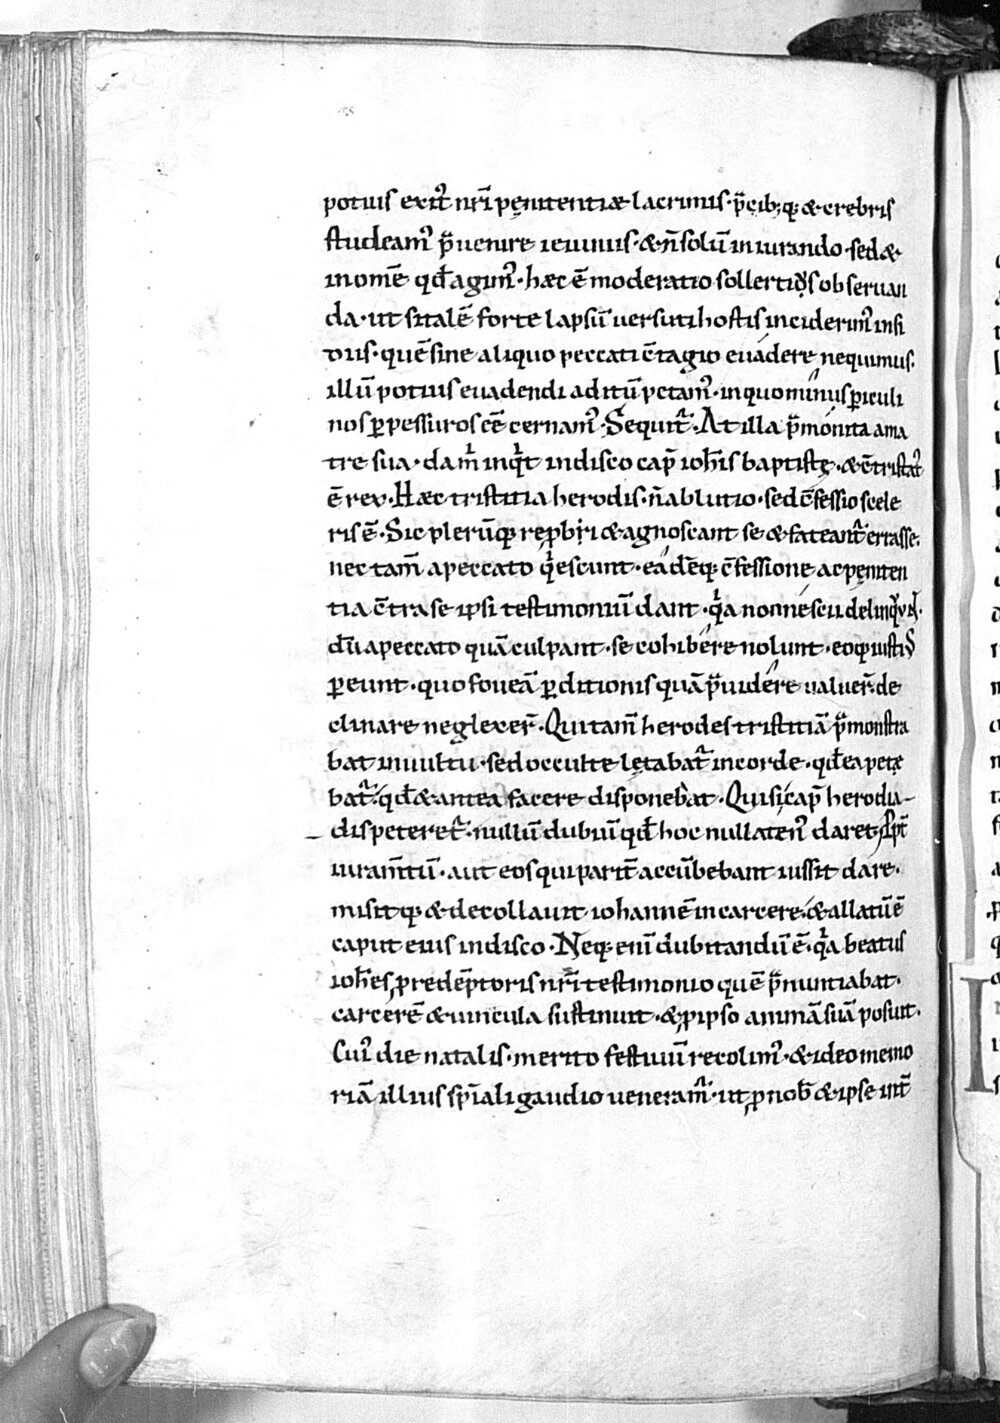 potius exit᷒ nr̄i pęnitentiæ lacrimis · p̄cib; q; & crebris
studeam᷒ p̄uenire ieiuniis · & n̄ solū in iurando · sed &
in omē qd̄ agim᷒ · hæc ē moderatio sollerti᷒ obseruan
da · ut si talē forte lapsū uersuti hostis inciderim᷒ insi
diis · quē sine aliquo peccati c̄tagio euadere nequimus.
illū potius euadendi aditū petam᷒ · in quo minus piculi
nos ppessuros ēē cernam᷒ · Sequit᷑ · At illa p̄monita a ma
tre sua · da m̄ inqͥt in disco cap̄ ioh̄is baptistę · & c̄tristat᷒
ē rex · Hæc tristitia herodis · n̄ ablutio · sed c̄fessio scele
ris ē · Sic plerūq; rep̱bri & agnoscant se & fateant᷑ errasse.
nec tam̄ a peccato qͥescunt · eadēq; c̄fessione ac pęniten
tia c̄tra se ipsi testimoniū dant · qͣa non nescii delinqunt.
dū a peccato quā culpant · se cohibere nolunt · eoq; iusti᷒
peunt · quo foueā pditionis quā p̄uidere ualuer̄ · de
clinare neglexer̄ · Qui tam̄ herodes tristitiā p̄monstra
bat in uultu · sed occulte lętabat᷑ in corde · qd̄ ea pete
bat᷑ · qd̄ & antea facere disponebat · Qui si cap̄ herodia-
dis peteret᷑ · nullū dubiū qd̄ hoc nullaten᷒ daret · p̱pt̄
iuram̄tū · aut eos qui parit̄ accūbebant iussit dare ·
misitq; & decollauit iohannē in carcere · & allatū ē
caput eius in disco · Neq; enī dubitandū ē · qͣa beatus
ioh̄es p̱ redēptoris nr̄i testimonio quē p̄nuntiabat ·
carcerē & uincula sustinuit · & p̱ ipso animā suā posuit.
Cui᷒ die natalis · merito festiuū recolim᷒ · & ideo memo
riā illius sp̄iali gaudio ueneram᷑ · ut p̱ nob̄ & ipse int̄